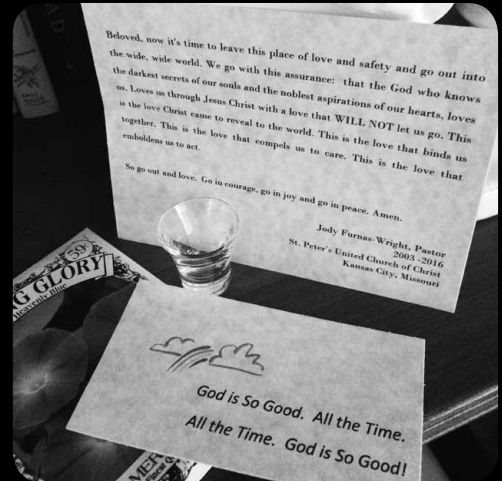 Beloved, now it's time to leave this place of love and safety and go out into
the wide, wide world. We go with this assurance: that the God who knows
the darkest secrets of our souls and the noblest aspirations of our hearts, loves
us. Loves us through Jesus Christ with a love that WILL NOT let us go. This
is the love Christ came to reveal to the world. This is the love that binds us
together. This is the love that compels us to care. This is the love that
emboldens us to act.
So go out and love. Go in courage, go in joy and go in peace. Amen.
Jody Furnas-Wright, Pastor
2003 -2016
St. Peter's United Church of Christ
Kansas City, Missouri
59¢
G GLORY
Heavenly Blue
God is So Good. All the Time.
All the Time. God is So Good!
MER